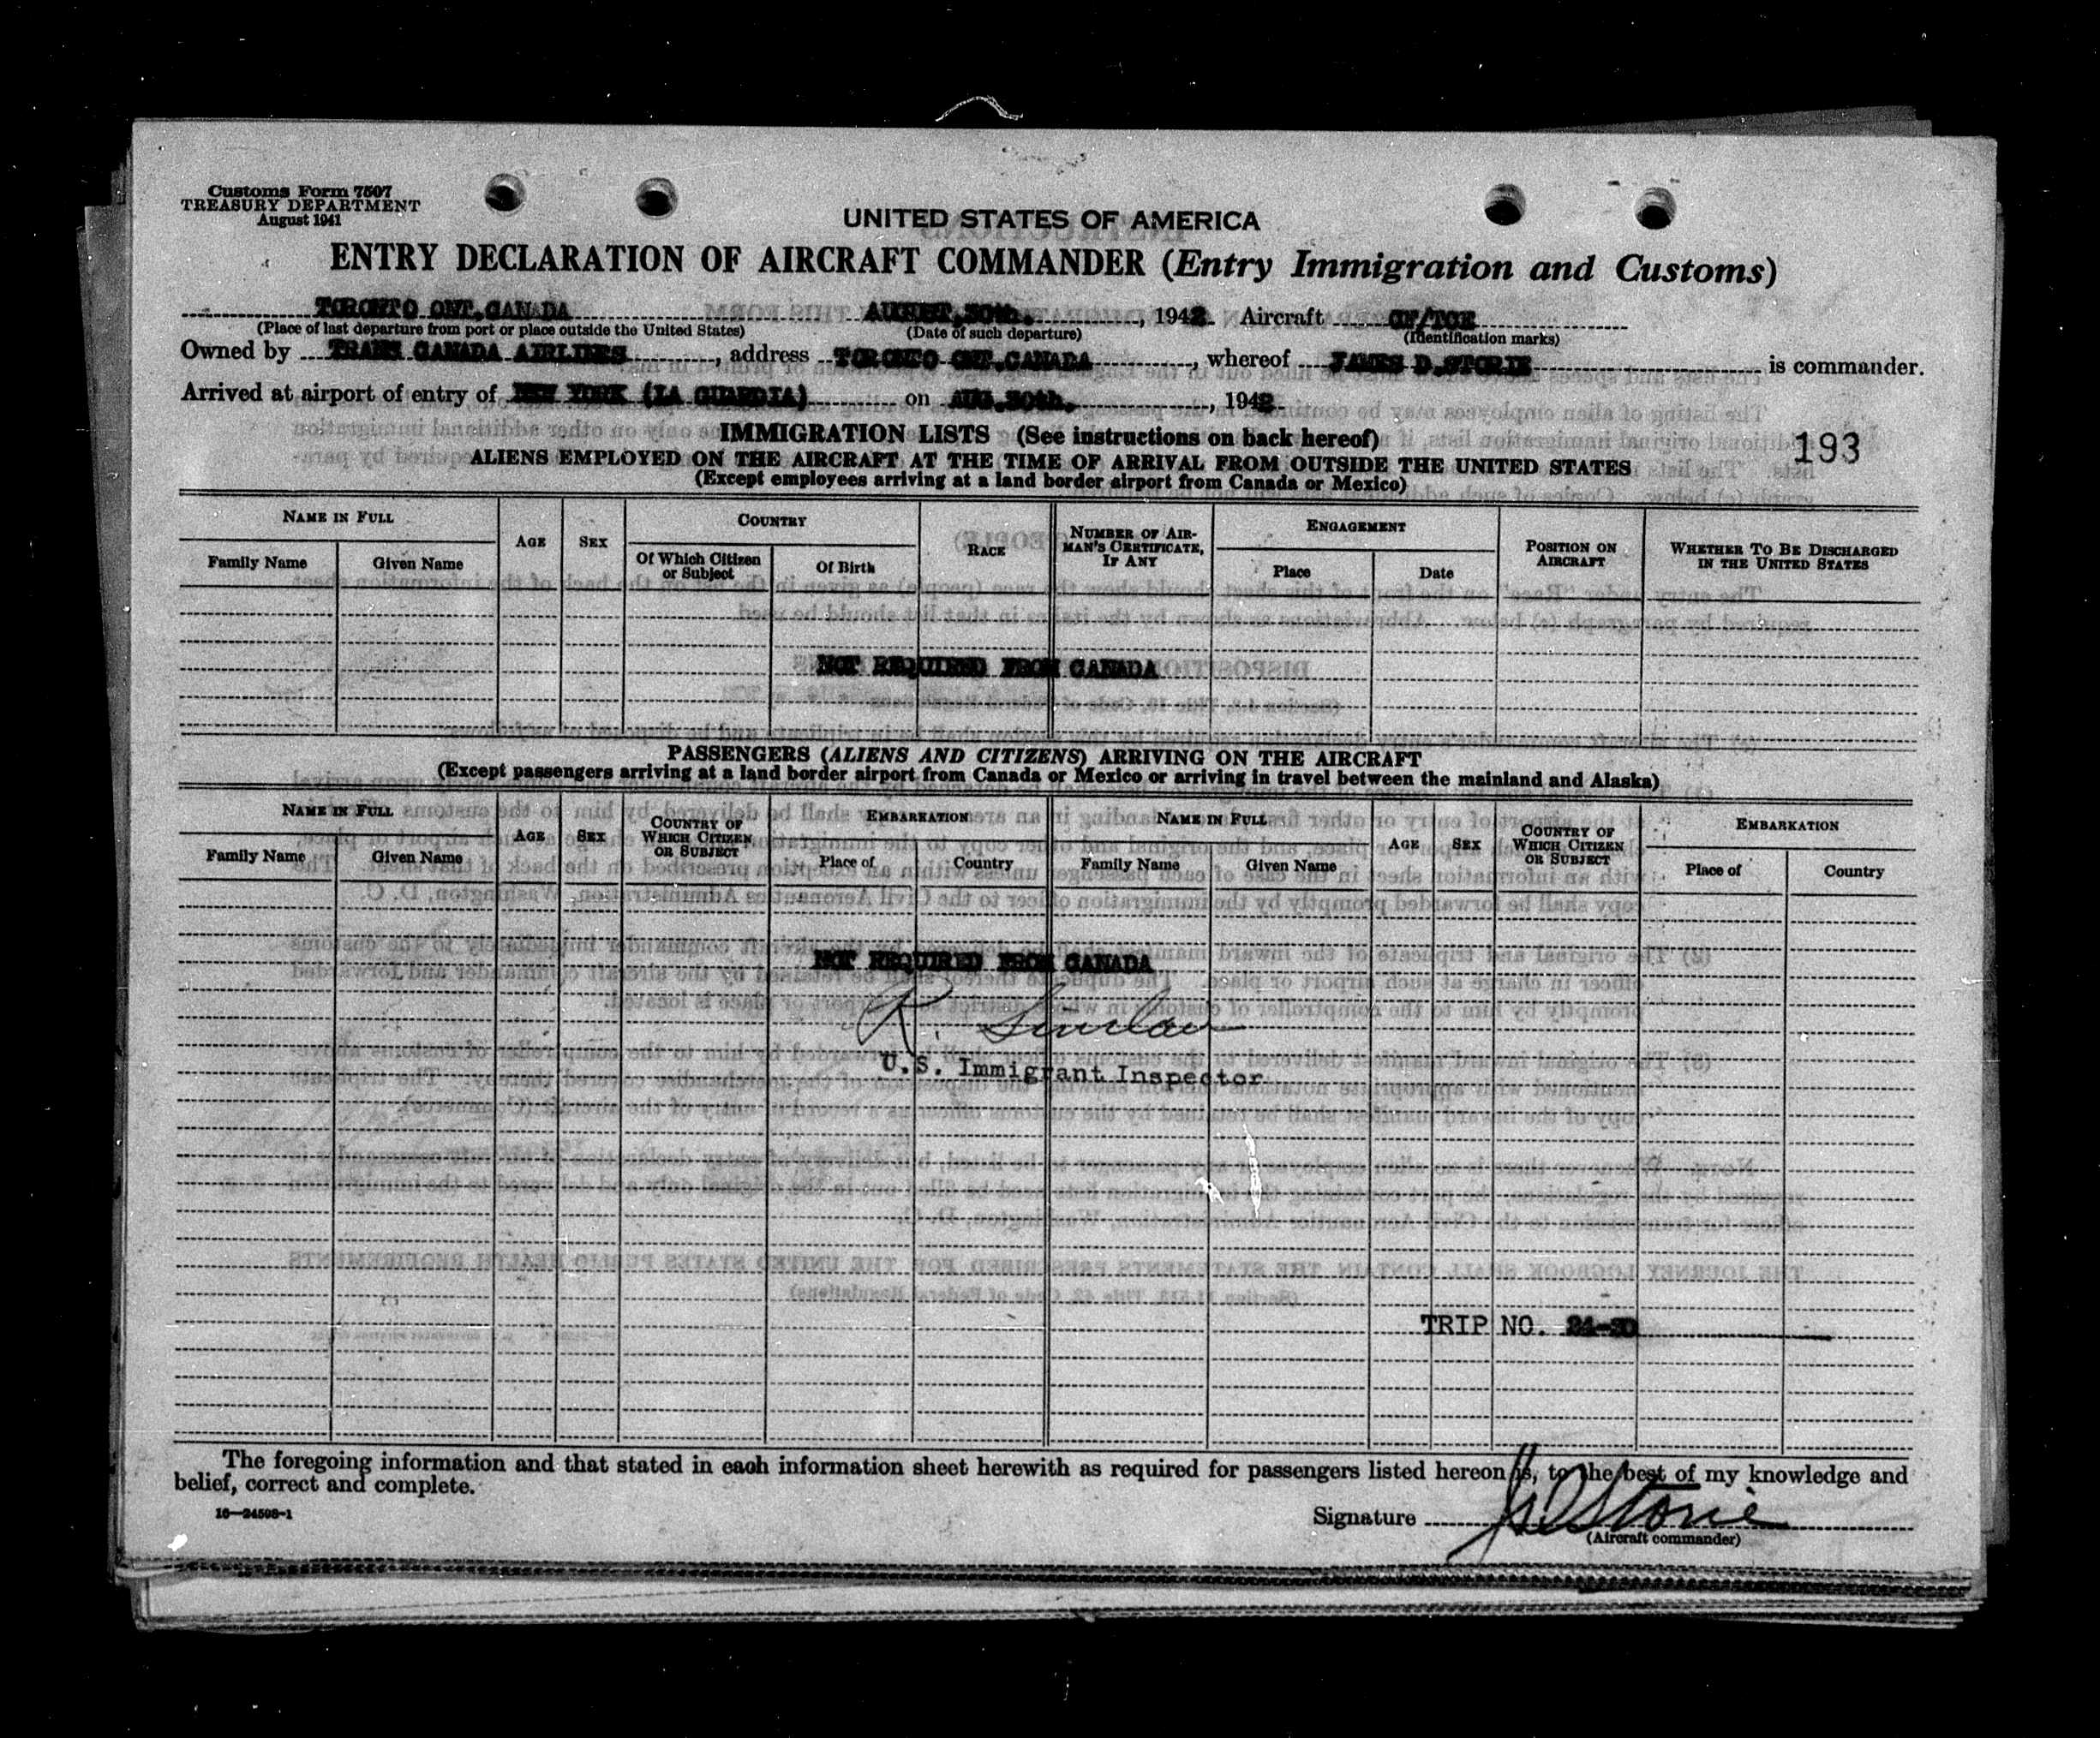 Customs Form 7507
TREASURY DEPARTMENT
August 1941
UNITED STATES OF AMERICA
ENTRY DECLARATION OF AIRCRAFT COMMANDER (Entry Immigration and Customs)
TORONTO ONT.CANADA AUGUST.30th. , 1942. Aircraft CF/TCE
(Place of last departure from port or place outside the United States) (Date of such departure) (Identification marks)
Owned by TRANS CANADA AIRLINES , address TORONTO ONT.CANADA , whereof JAMES D.STORIE is commander.
Arrived at airport of entry of NEW YORK (LA GUARDIA) on AUG.30th. , 1942.
IMMIGRATION LISTS (See instructions on back hereof)
193
ALIENS EMPLOYED ON THE AIRCRAFT AT THE TIME OF ARRIVAL FROM OUTSIDE THE UNITED STATES
(Except employees arriving at a land border airport from Canada or Mexico)
NAME IN FULL AGE SEX COUNTRY RACE NUMBER OF AIRMAN'S CERTIFICATE, IF ANY ENGAGEMENT POSITION ON AIRCRAFT WHETHER TO BE DISCHARGED IN THE UNITED STATES
Family Name Given Name Of Which Citizen or Subject Of Birth Place Date
NOT REQUIRED FROM CANADA
PASSENGERS (ALIENS AND CITIZENS) ARRIVING ON THE AIRCRAFT
(Except passengers arriving at a land border airport from Canada or Mexico or arriving in travel between the mainland and Alaska)
NAME IN FULL AGE SEX COUNTRY OF WHICH CITIZEN OR SUBJECT EMBARKATION NAME IN FULL AGE SEX COUNTRY OF WHICH CITIZEN OR SUBJECT EMBARKATION
Family Name Given Name Place of Country Family Name Given Name Place of Country
NOT REQUIRED FROM CANADA
R.
U.S. Immigrant Inspector
TRIP NO. 24-30
The foregoing information and that stated in each information sheet herewith as required for passengers listed hereon is, to the best of my knowledge and
belief, correct and complete.
16—24598-1
Signature J D Storie
(Aircraft commander)